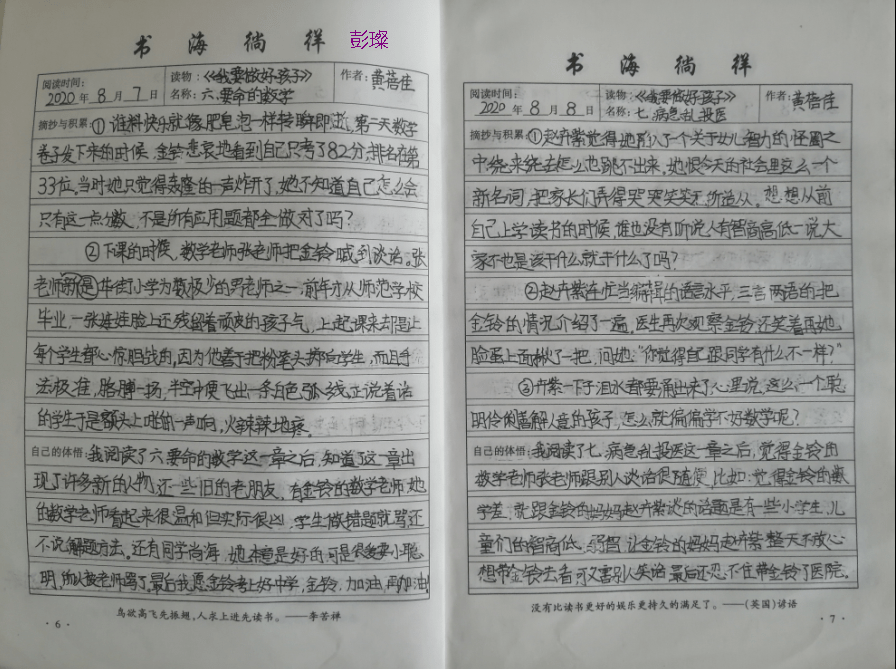 书海徜徉 彭璨
阅读时间: 2020年8月7日 读物名称: 《我要做好孩子》六.要命的数学 作者: 黄蓓佳
摘抄与积累: ①谁料快乐就像肥皂泡一样转瞬即逝,第二天数学
卷子发下来的时候,金铃悲哀地看到自己只考了82分,排名在第
33位。当时她只觉得轰隆的一声炸开了,她不知道自己怎么会
只有这一点分数,不是所有应用题都全做对了吗?
②下课的时候,数学老师张老师把金铃喊到谈话。张
老师是华街小学为数极少的男老师之一,前年才从师范学校
毕业,一张娃娃脸上还残留着顽皮的孩子气,上起课来却是让
每个学生都心惊胆战的,因为他善于把粉笔头掷向学生,而且手
法极准,胳膊一扬,半空中便飞出一条白色弧线,正说着话
的学生于是额头上啪的一声响,火辣辣地疼。
自己的体悟: 我阅读了六.要命的数学这一章之后,知道了这一章出
现了许多新的人物,还一些旧的老朋友,有金铃的数学老师,她
的数学老师看起来很温和但实际很凶,学生做错题就骂还
不说解题方法。还有同学尚海,她本意是好的,可是很爱耍小聪
明,所以被老师骂了,最后我愿金铃考上好中学,金铃,加油,再加油!
鸟欲高飞先振翅,人求上进先读书。——李苦禅
·6·
书海徜徉
阅读时间: 2020年8月8日 读物名称: 《我要做好孩子》七.病急乱投医 作者: 黄蓓佳
摘抄与积累: ①赵卉紫觉得她陷入了一个关于女儿智力的怪圈之
中,绕来绕去怎么也跳不出来,她恨今天的社会里这么一个
新名词,把家长们弄得哭哭笑笑无所适从。想想从前
自己上学读书的时候,谁也没有听说人有智商高低一说,大
家不也是该干什么就干什么了吗?
②赵卉紫在忙当编辑的语言水平,三言两语的把
金铃的情况介绍了一遍,医生再次观察金铃,还笑着再她
脸蛋上面揪了一把,问她:“你觉得自己跟同学有什么不一样?”
③卉紫一下子泪水都要涌出来了,心里说,这么一个聪
明伶俐善解人意的孩子,怎么就偏偏学不好数学呢?
自己的体悟: 我阅读了七.病急乱投医这一章之后,觉得金铃的
数学老师张老师跟别人谈话很随便,比如:觉得金铃的数
学差,就跟金铃的妈妈赵卉紫谈的话题是有一些小学生,儿
童们的智商低,弱智,让金铃的妈妈赵卉紫整天不放心
想带金铃去看可又害别人笑话,最后还忍不住带金铃了医院。
没有比读书更好的娱乐更持久的满足了。——(英国)谚语
·7·